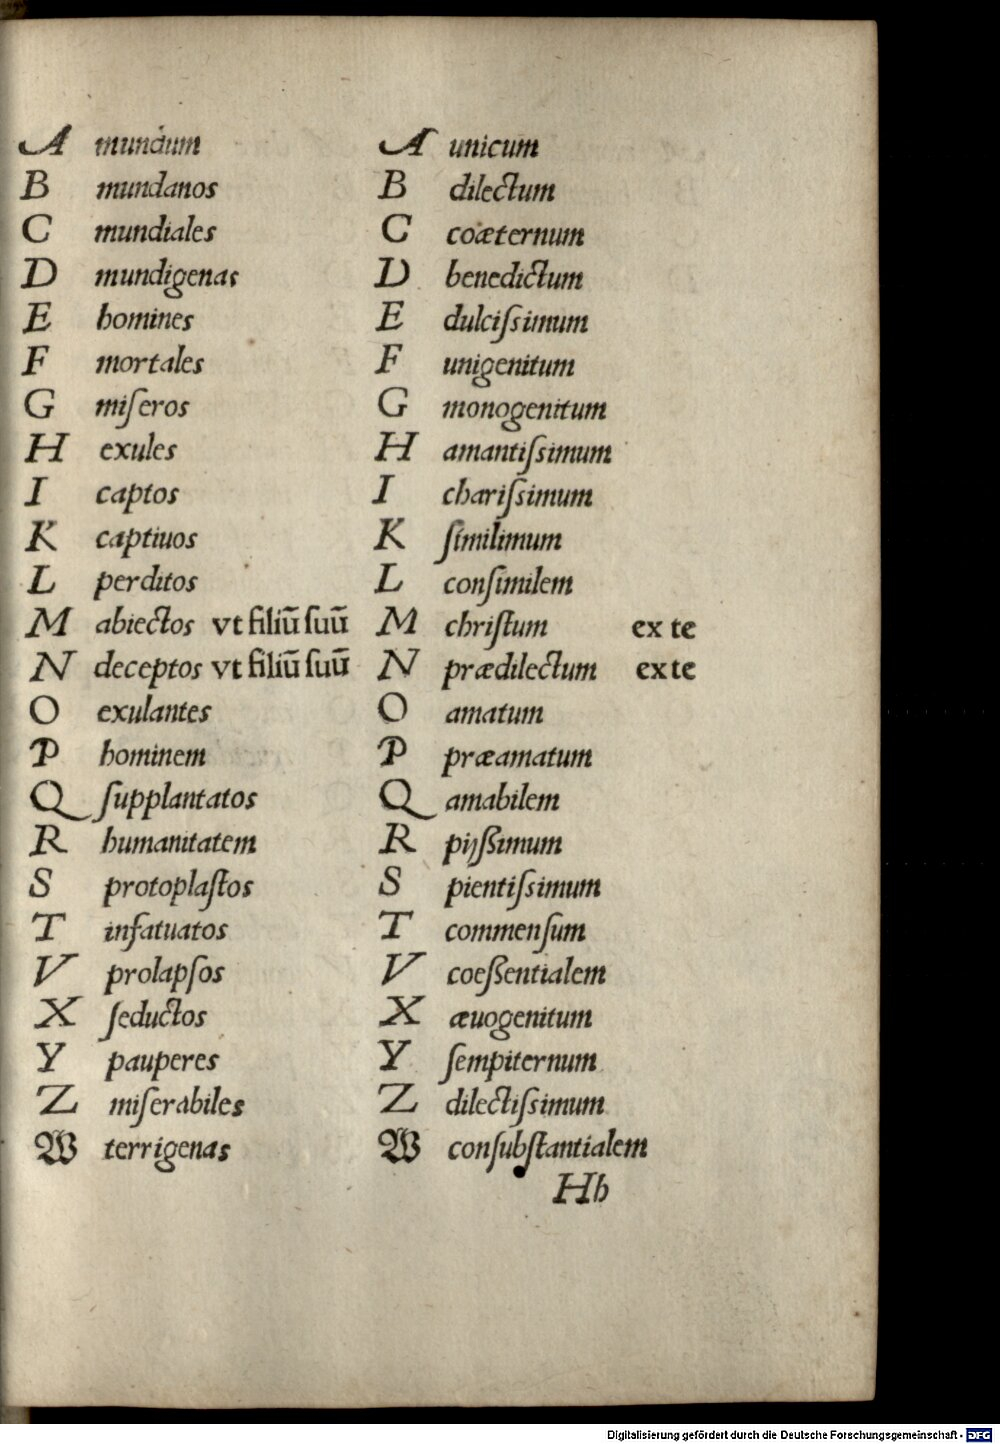 A mundum
B mundanos
C mundiales
D mundigenas
E homines
F mortales
G miſeros
H exules
I captos
K captiuos
L perditos
M abiectos vt filiū ſuū
N deceptos vt filiū ſuū
O exulantes
P hominem
Q ſupplantatos
R humanitatem
S protoplaſtos
T infatuatos
V prolapſos
X ſeductos
Y pauperes
Z miſerabiles
W terrigenas
A unicum
B dilectum
C coæternum
D benedictum
E dulciſsimum
F unigenitum
G monogenitum
H amantiſsimum
I chariſsimum
K ſimilimum
L conſimilem
M chriſtum ex te
N prædilectum ex te
O amatum
P præamatum
Q amabilem
R pijßimum
S pientiſsimum
T commenſum
V coeßentialem
X æuogenitum
Y ſempiternum
Z dilectiſsimum
W conſubſtantialem
Hb
Digitalisierung gefördert durch die Deutsche Forschungsgemeinschaft - DFG